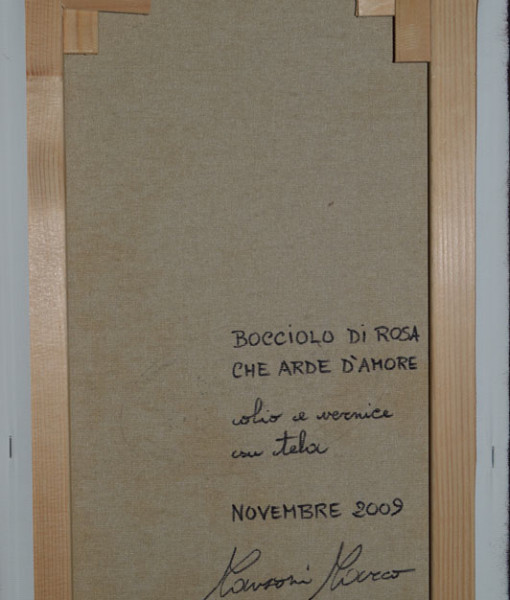 BOCCIOLO DI ROSA
CHE ARDE D'AMORE
olio e vernice
su tela
NOVEMBRE 2009
Marco